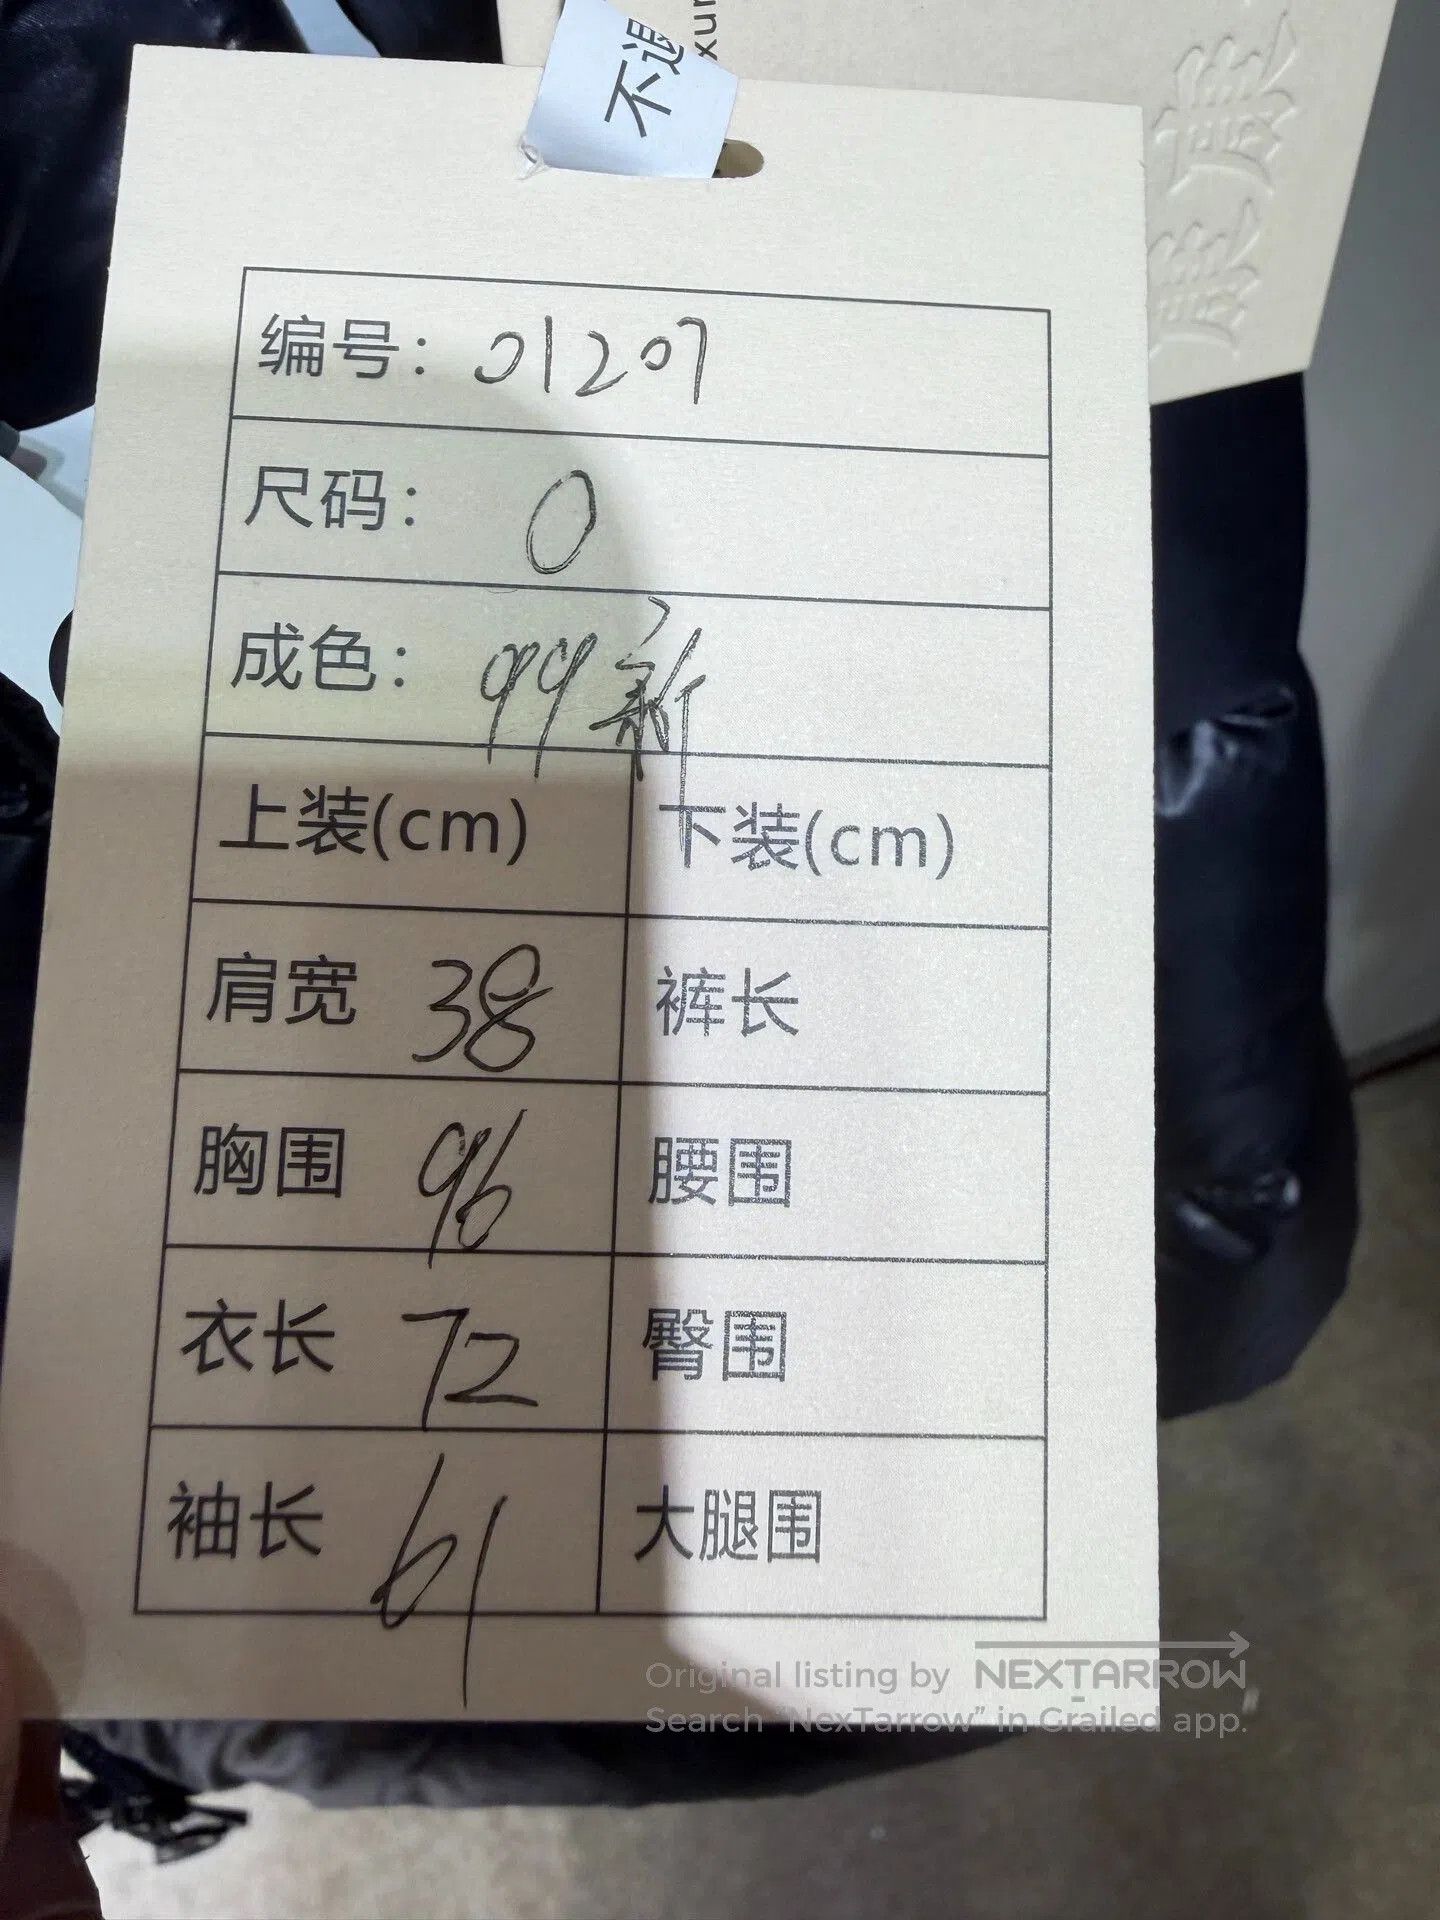 不退
xur
編號：01207
尺码： 0
成色：99新
上装(cm) 下装(cm)
肩宽 38 裤长
胸围 96 腰围
衣长 72 臀围
袖长 61 大腿围
Original listing by NEXTARROW
Search "NexTarrow" in Grailed app.